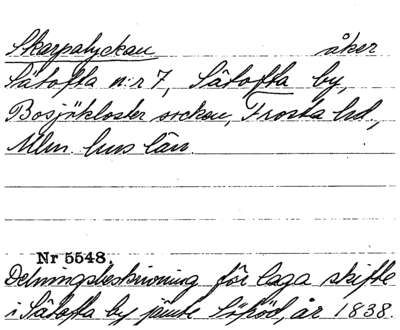 Skarpalyckan åker
Sätofta n:r 7, Sätofta by,
Bosjökloster socken, Frosta hd.,
Mlm. hus län.
Nr 5548.
Delningsbeskrivning för laga skifte
i Sätofta by jämte Sjöröd, år 1838.